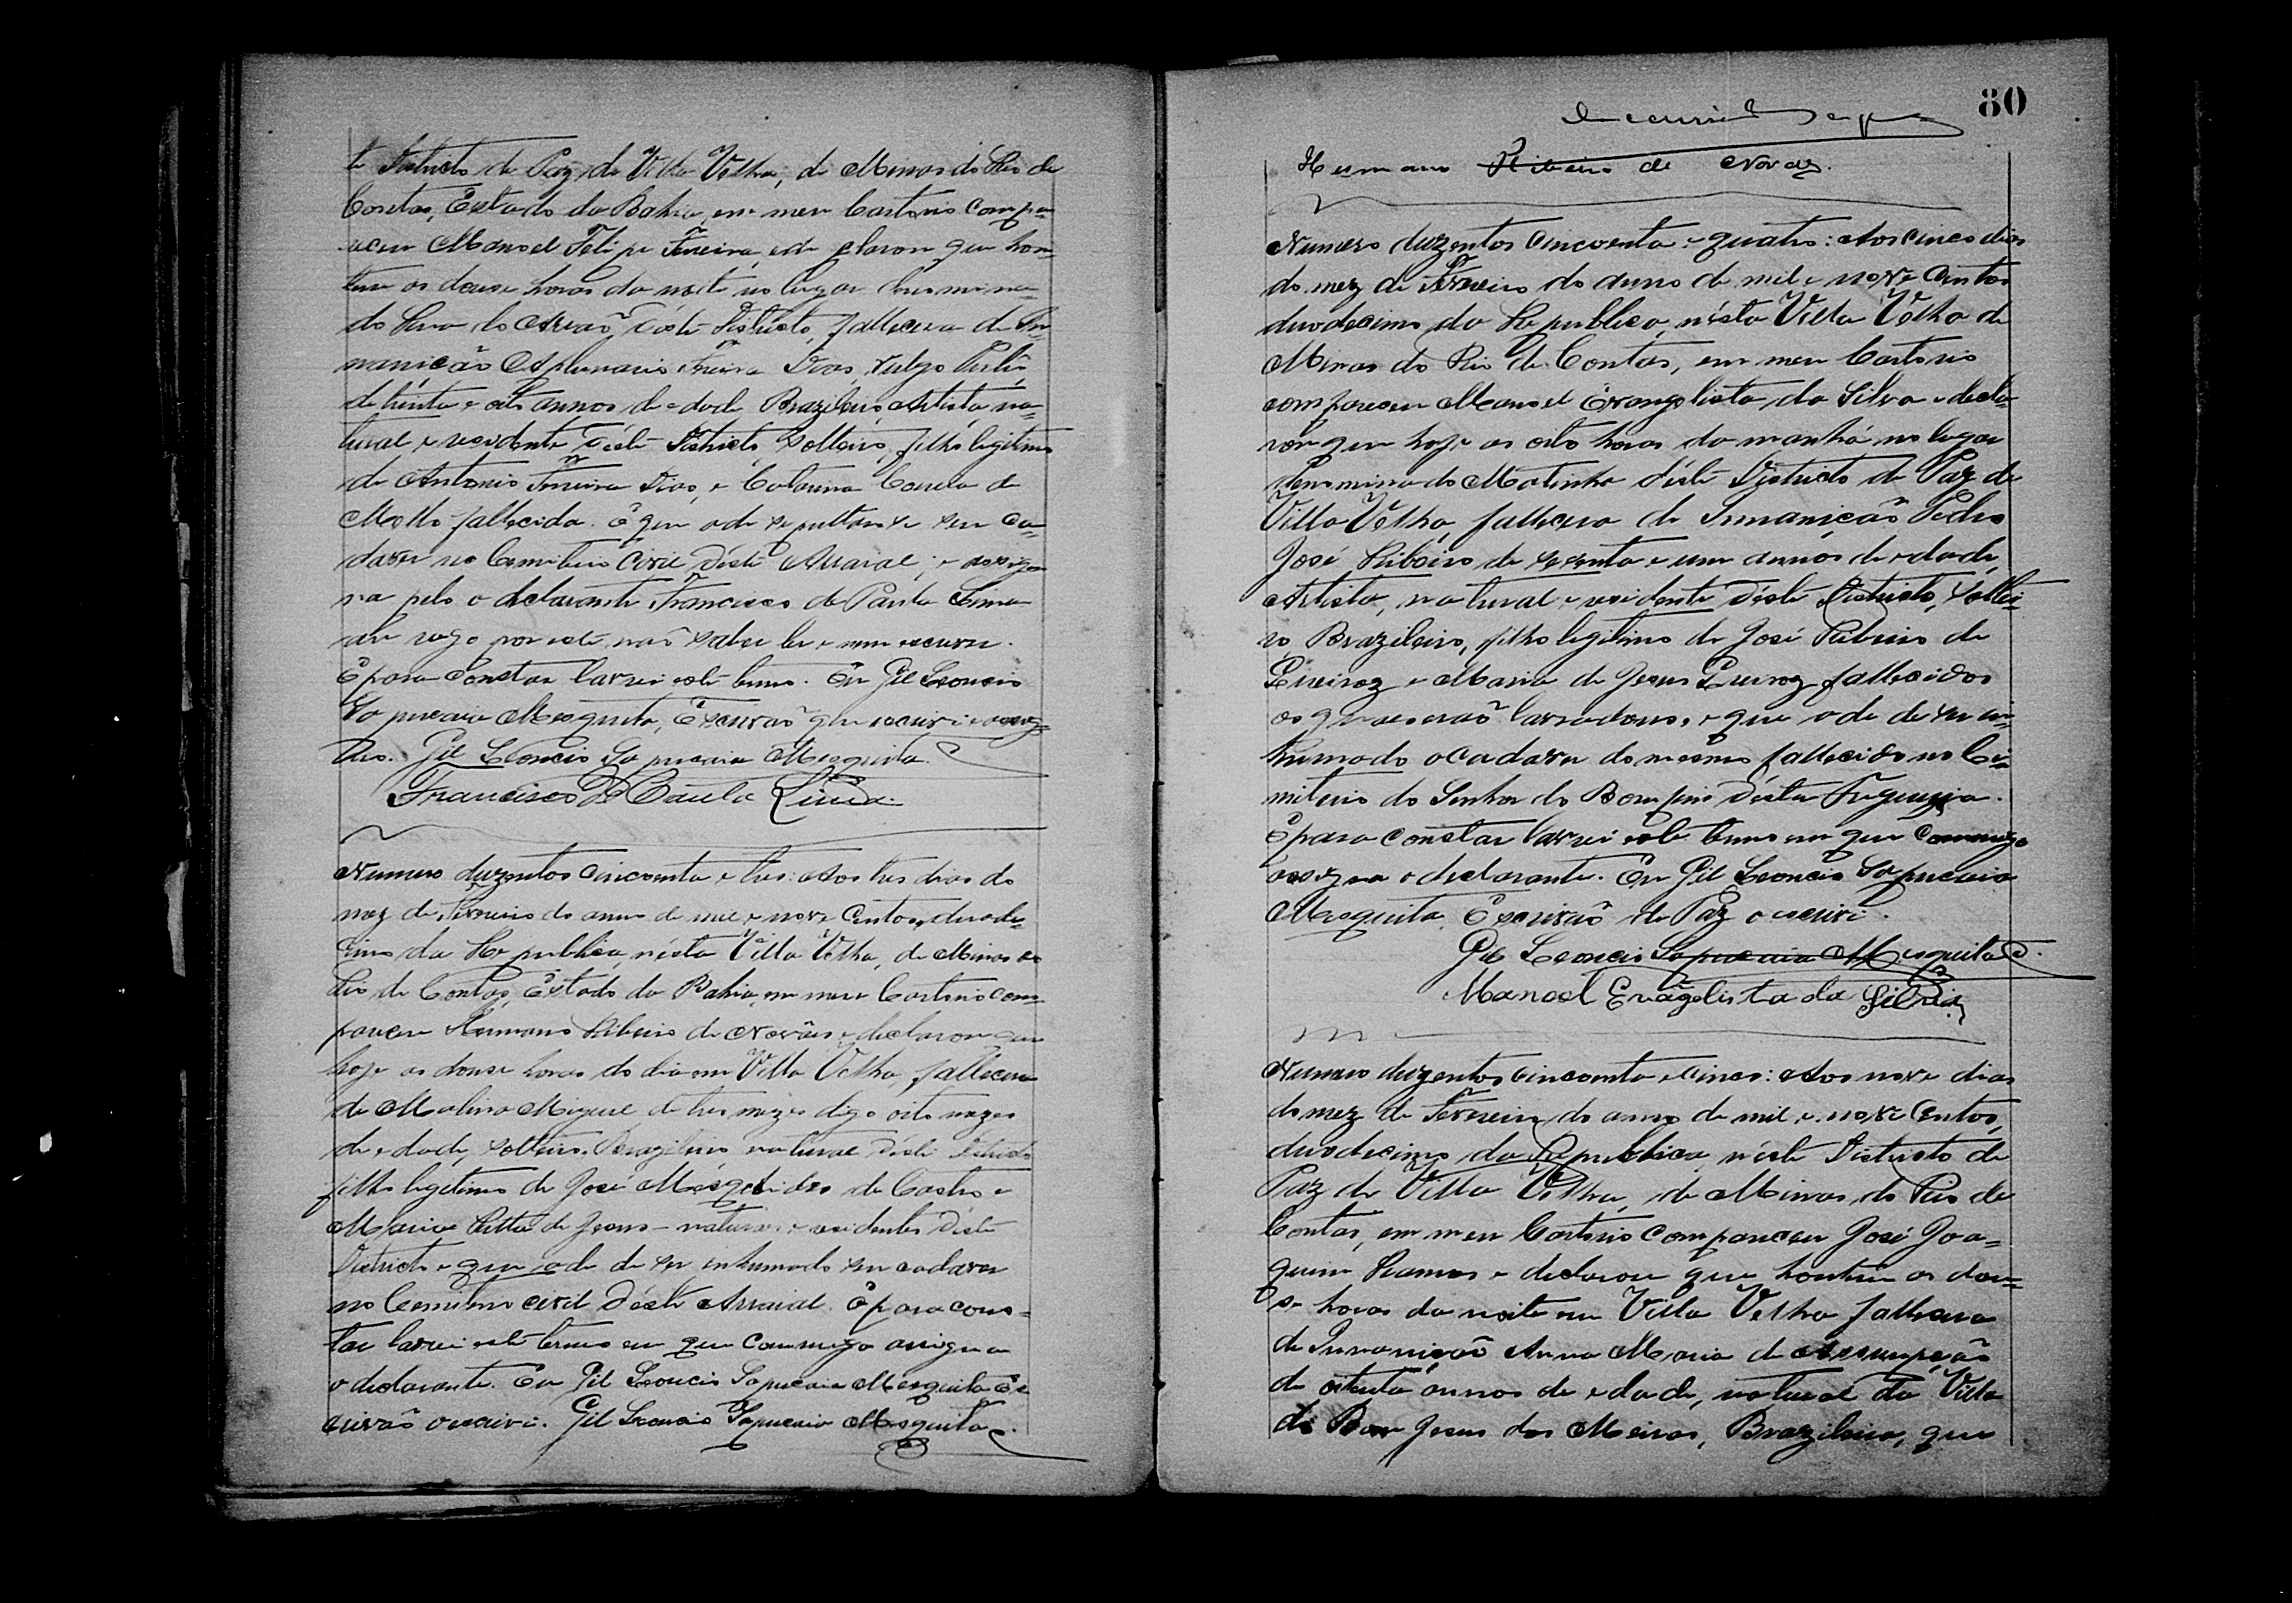 te Districto de Paz da Villa Velha, de Minas do Rio de
Contas, Estado da Bahia, em meu Cartorio compa=
receu Manoel Felipe Ferreira, e declarou que hon=
tem as douse horas da noite no lugar denomina=
do do Areaõ d'este Districto, fallecera de In=
maniçaõ Apolinario Ferreira Dias, vulgo
de trinta e oito annos de edade Brazileiro Artista, na=
tural e residente d'este Districto, solteiro, filho legitimo
de Antonio Ferreira Dias, e Catarina Correia de
Mello fallecida. E que a de sepultar-se seu ca=
daver no Cemiterio Civil d'este Arraial; e assig=
na pelo o declarante Francisco de Paula Lima
a seu rogo por este naõ saber ler e nem escrever.
E para constar lavrei este termo. Eu Gil Leoncio
Sapucaia Mesquita, Escrivaõ que escrevi e assig=
no. Gil Leoncio Sapucaia Mesquita.
Francisco de Paula Lima.
Numero duzentos cincoenta e tres: Aos tres dias do
mez de Fevereiro do anno de mil e nove centos, duode=
cimo da Republica, nésta Villa Velha, de Minas do
Rio de Contas, Estado da Bahia, em meu Cartorio com=
pareceu Hermano Ribeiro de Novaes e declarou que
hoje as douse horas do dia em Villa Velha, fallecera
de Molina Miguel de tres mezes digo oito mezes
de edade, solteiro, Brazileiro natural d'este Districto
filho legitimo de José de Castro e
Maria Ritta de Jesus naturaes e residentes d'este
Districto e que a de de ser inhumado seu cadaver
no Cemiterio civil d'este Arraial. E para cons=
tar lavrei este termo em que commigo assigna
o declarante. Eu Gil Leoncio Sapucaia Mesquita Es
crivaõ o escrivi. Gil Leoncio Sapucaia Mesquita.
80
Hermano Ribeiro de Novaz.
Numero duzentos cincoenta e quatro: Aos cinco dias
do mez de Fevereiro do anno de mil e nove centos
duodecimo da Republica, nésta Villa Velha de
Minas do Rio de Contas, em meu Cartorio
compareceu Manoel Evangelista da Silva e decla=
rou que hoje as oito horas da manhá no lugar
denominado Matinha d'éste Districto de Paz de
Villa Velha, fallecera de Inmaniçaõ Pedro
José Ribeiro de sessenta e um annos de edade,
Artista, natural e residente d'éste Districto, soltei=
ro, Brazileiro, filho legitimo de José Ribeiro de
Queiroz e Maria de Jesus Queiroz fallecidos
os quaes eraõ lavradores, e que a de de ser in=
humado o cadaver do mesmo fallecido no Ce=
miterio do Senhor do Bomfim d'ésta Freguezia.
E para constar lavrei este termo em que commigo
assigna o declarante. Eu Gil Leoncio Sapucaia
Mesquita, Escrivaõ de Paz o escrivi.
Gil Leoncio Sapucaia Mesquita.
Manoel Evangelista da Silva
Numero duzentos cincoenta e cinco: Aos nove dias
do mez de Fevereiro do anno de mil e nove centos,
duodecimo da Republica, néste Districto de
Paz de Villa Velha, de Minas do Rio de
Contas, em meu Cartorio compareceu José Joa=
quim Ramos e declarou que hontem as dou=
se horas da noite em Villa Velha fallecera
de Inmaniçaõ Anna Maria de Assumpçaõ
de oitenta annos de edade, natural da Villa
do Bom Jesus dos Meiras, Brazileira, que